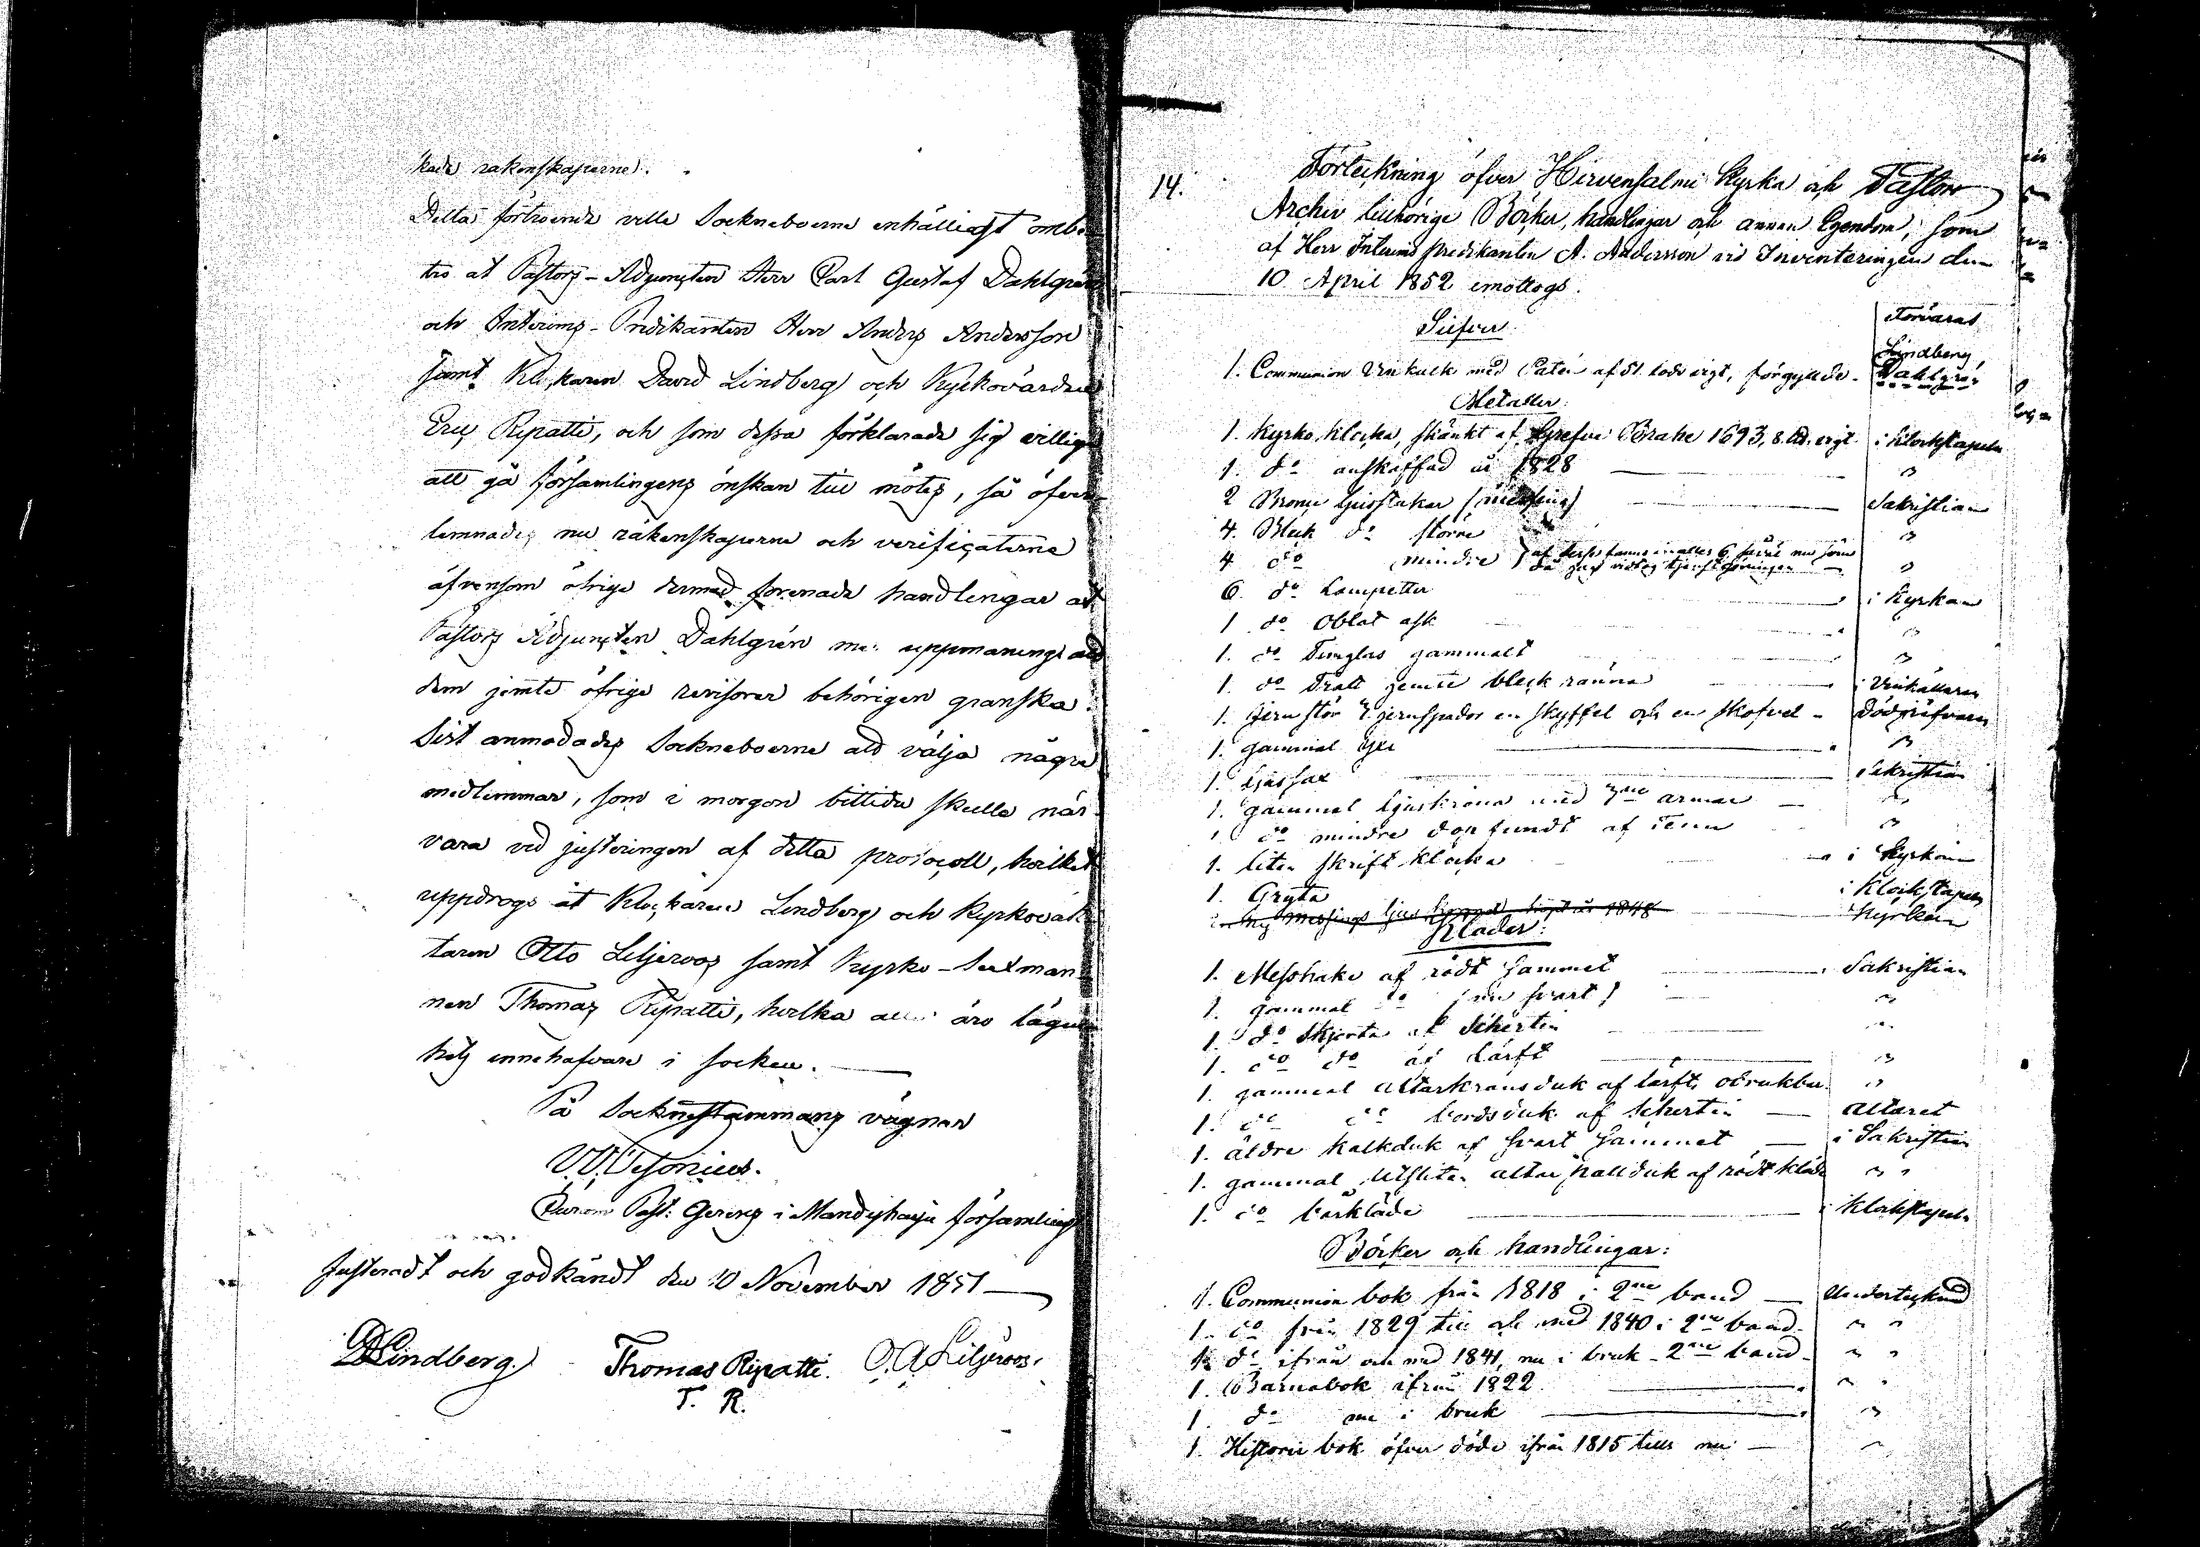 kade räkenskaperne.
Detta förtroende ville Sockneboerne enhälligt ombe-
tro at Pastors-Adjuncten Herr Carl Gustaf Dahlgrén
och Interims-Predikanten Herr Anders Andersson
samt Klockaren David Lindberg och Kyrkovärden
Eric Ripatti, och som dessa förklarade sig villige
att gå församlingens önskan till mötes, så öfver-
lemnades nu räkenskaperne och verificaterne
äfvensom öfrige dermed förenade handlingar at
Pastors Adjuncten Dahlgrén med uppmaning att
dem jemte öfrige revisorer behörigen granska.
Sist anmodades Sockneboerne att välja några
medlemmar, som i morgon bittida skulle när-
vara vid justeringen af detta protocoll, hvilket
uppdrogs åt Klockaren Lindberg och Kyrkovak-
taren Otto Liljeroos samt Kyrko-Sexman-
nen Thomas Ripatti, hvilka alla äro lägen-
hets innehafvare i socken.
På Sockenstämmans vägnar
Past: i Mandyharju församling
Justeradt och godkändt den 10 November 1851
D Lindberg. Thomas Ripatti. O. A Liljeroos.
T. R.
14. Förteckning öfver Hirvensalmi Kyrka och Pastors
Archiv tillhörige Böcker, handlingar och annan Egendom, som
af Herr Interims predikanten A. Andersson vid Inventeringen den
10 April 1852 emottogs.
Silfver. Förvaras
1. Communion Vinkalk med Patén af 51 lods vigt, förgylde. Lindberg, Dahlgrén
Metaller.
1. Kyrko klocka, skänkt af Grefve Brahe 1693, 8. vigt. i Klockstapeln
1. do anskaffad år 1828 "
2 Ljusstakar (messing) Sakristian
4. Bleck do större "
4 do mindre } af desse fanns inalles 6 "
6. do Lampetter i Kyrkan
1. do Oblat ask "
1. do Timglas gammalt "
1. do Tratt jemte bleck ränna i Vinkällaren
1. Jern stör 2 jernspador en skyffel och en skofvel - Dödgräfvaren
1. gammal yxe "
1. Ljussax Sakristian
1. gammal Ljuskrona med 7 armar "
1. do mindre dopfundt af Tenn "
1. liten skrift klocka i Kyrkan
1. Gryta i Klockstapeln
messings ljus 1848 Kyrkan
Kläder:
1. Messhake af rödt Sammet Sakristian
1. gammal do (nu svart) "
1. do Skjorta af Schertin "
1. do do af Lärft "
1. gammal altarkransduk af lärft, obrukbar. "
1. do do bordsduk af Schertin altaret
1. äldre kalkduk af svart Sammet i Sakristian
1. gammal utsliten altar palldukaf rödt kläde " "
1. do bårkläde i Klockstapeln
Böcker och handlingar:
1. Communion bok från 1818 i 2ne band Undertecknad
1. do från 1829 till och med 1840 i 2ne band. " "
1. do ifrån och med 1841, nu i bruk - 2ne band. " "
1. Barnabok ifrån 1822. " "
1. do nu i bruk "
1. Historie bok öfver döde ifrån 1815 tills nu "